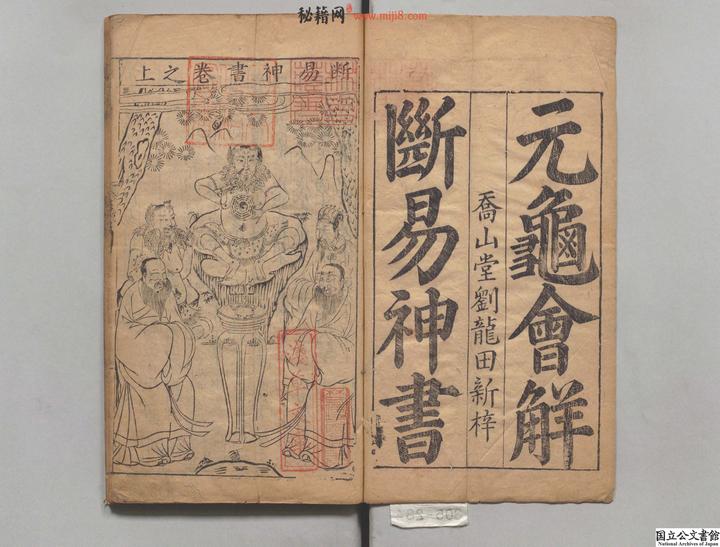 秘籍网 www.miji8.com
元龜會解
喬山堂劉龍田新梓
斷易神書
断易神書卷之上
国立公文書館
National Archives of Japan